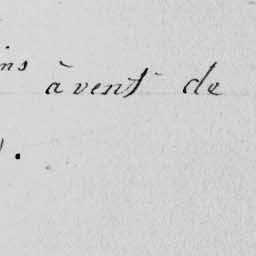 ins à vent de